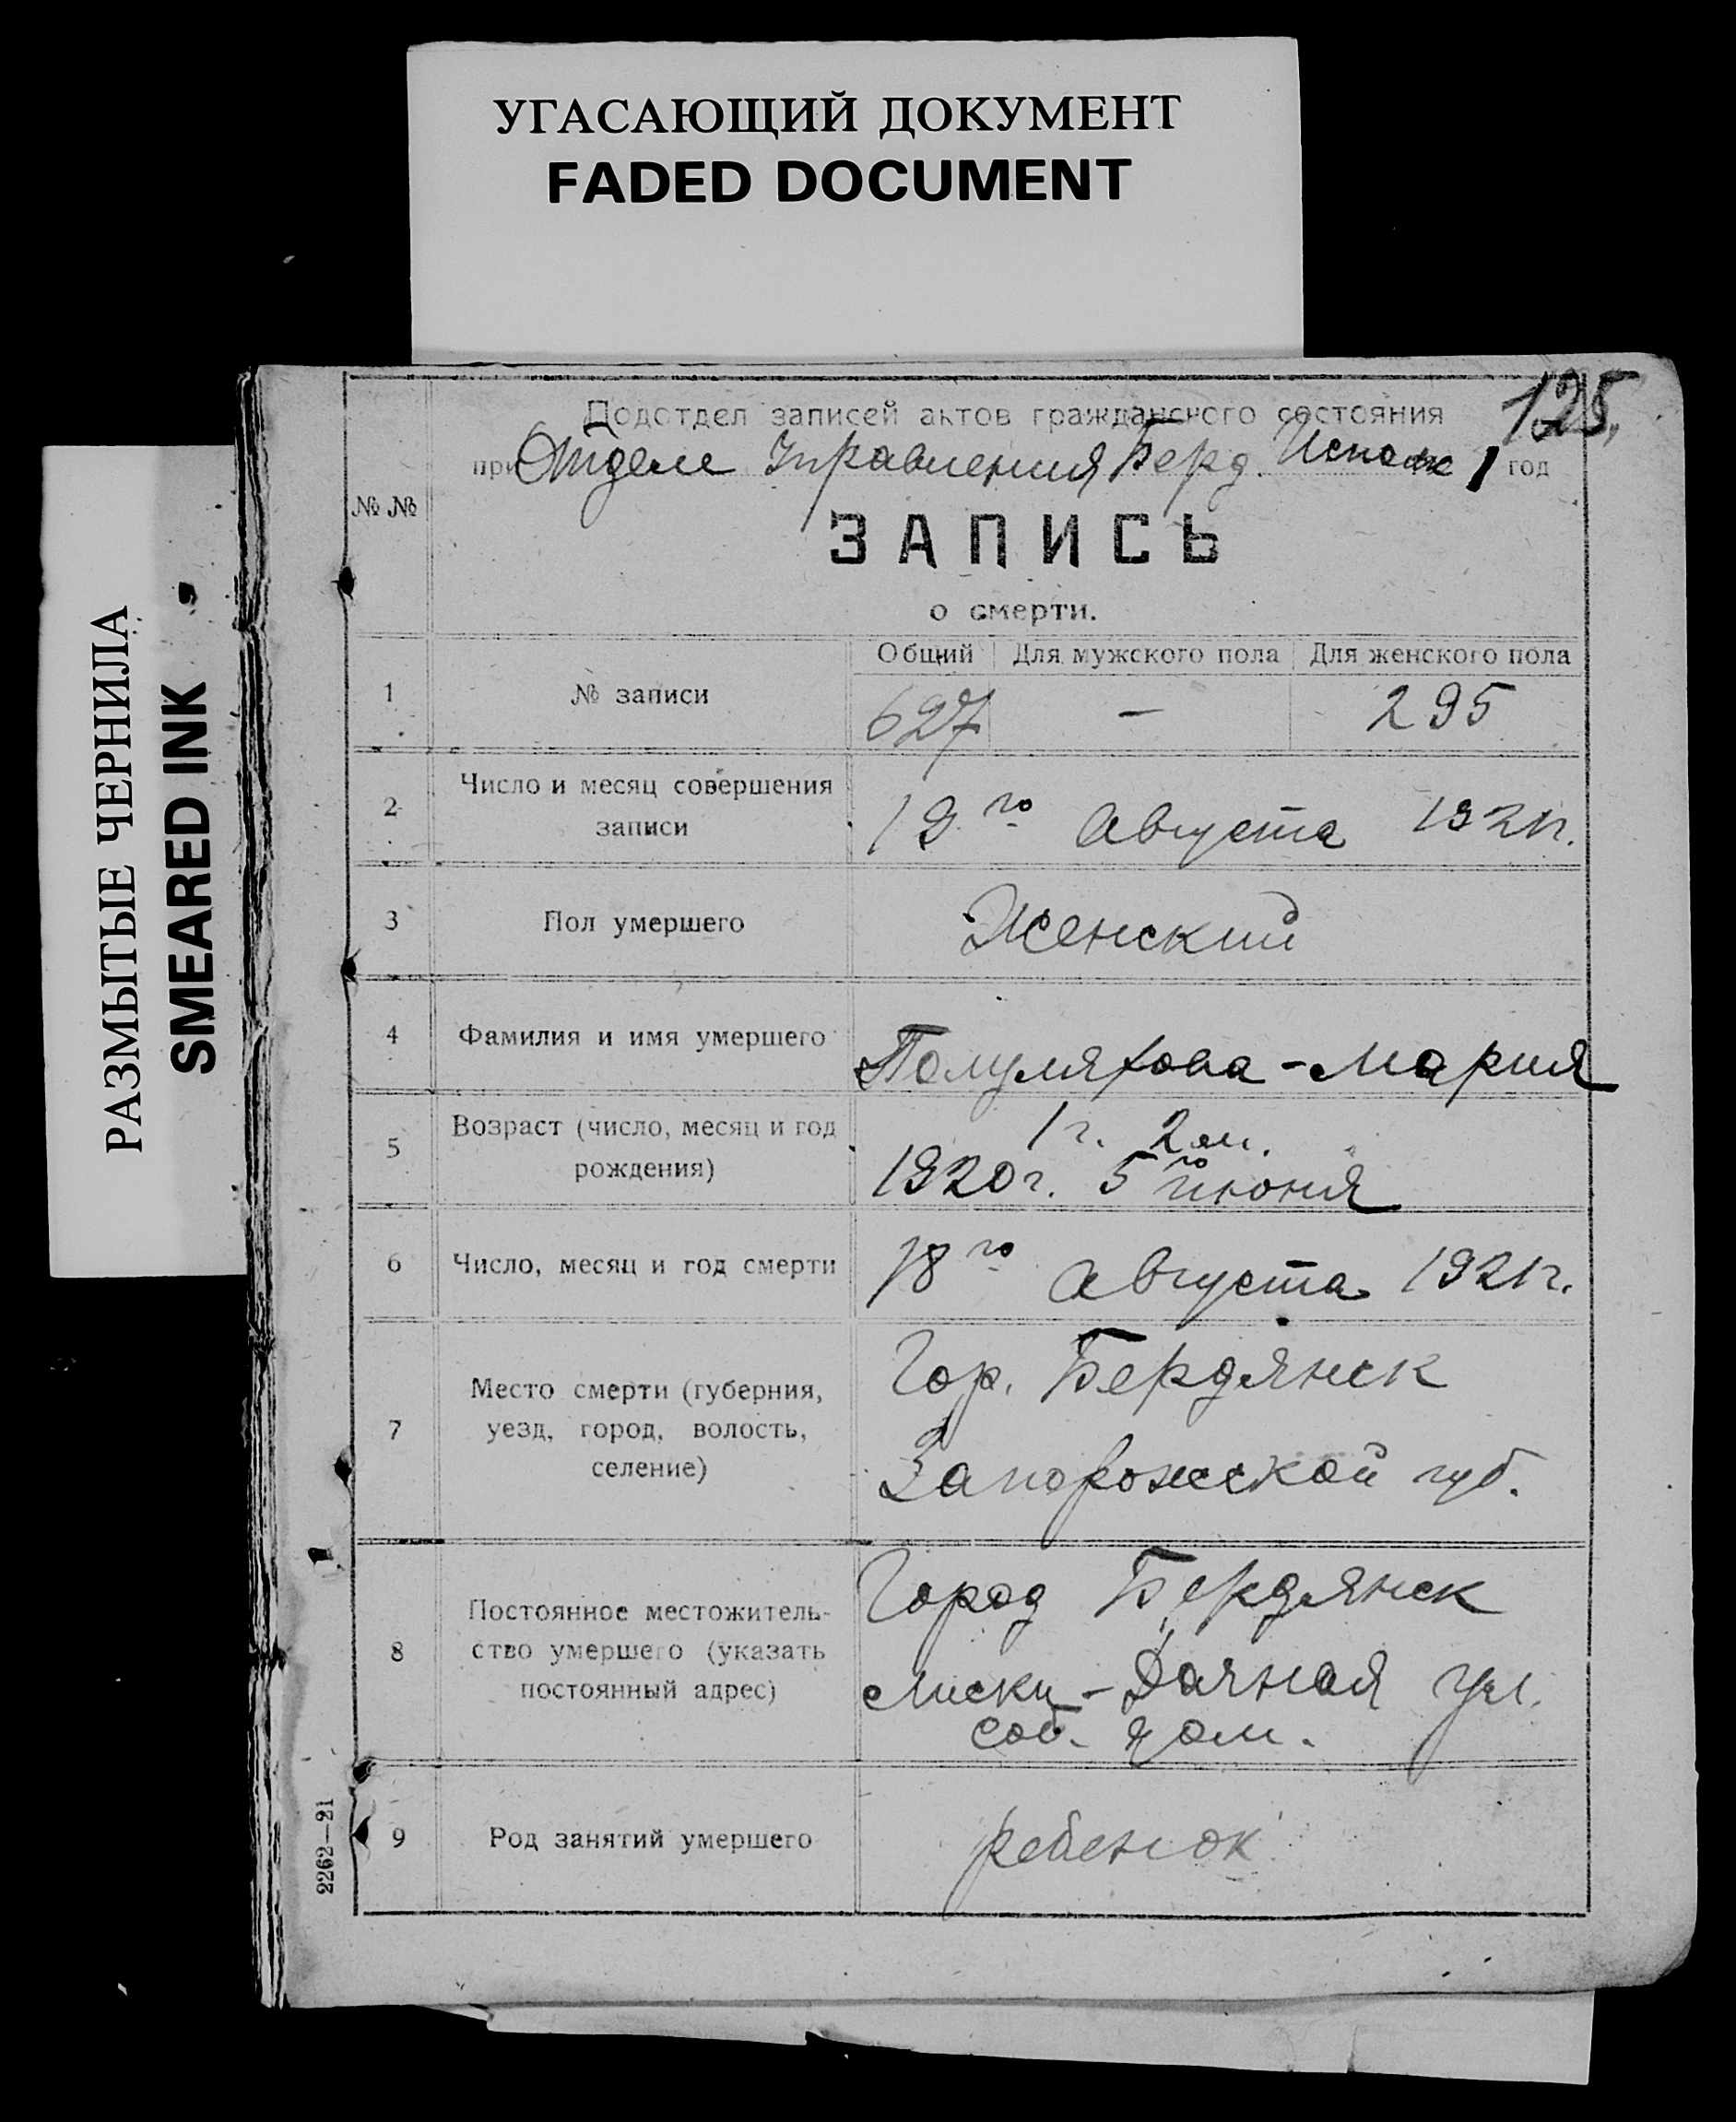 УГАСАЮЩИЙ ДОКУМЕНТ
FADED DOCUMENT
РАЗМЫТЫЕ ЧЕРНИЛА
SMEARED INK
125.
Подотдел записей актов гражданского состояния
при Отделе Управления Берд. 1 год
№ №
ЗАПИСЬ
о смерти.
Общий Для мужского пола Для женского пола
1 № записи 627 — 295
2 Число и месяц совершения
записи 19го Августа 1921г.
3 Пол умершего Женский
4 Фамилия и имя умершего Полуляхова - Мария
5 Возраст (число, месяц и год
рождения)
1 г. 2 м.
1920г. 5го июня
6 Число, месяц и год смерти 18го Августа 1921г.
7 Место смерти (губерния,
уезд, город, волость,
селение)
Гор. Бердянск
Запорожской губ.
8 Постоянное местожитель-
ство умершего (указать
постоянный адрес)
Город Бердянск
Лиски - Дачная ул.
соб. дом.
9 Род занятий умершего ребенок
2262—21